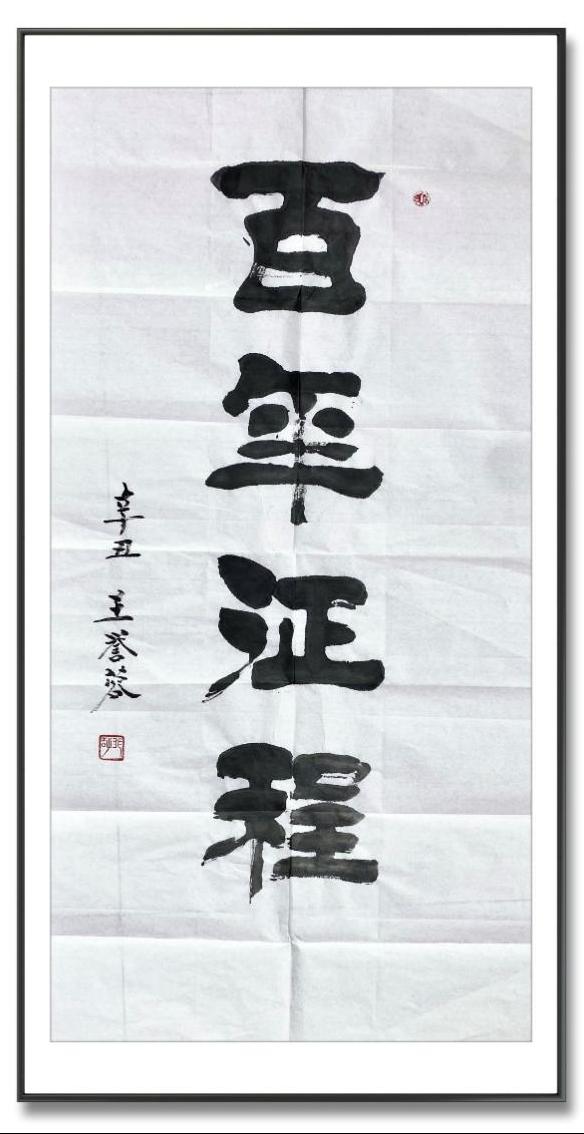 百年征程
辛丑 王誉蓉